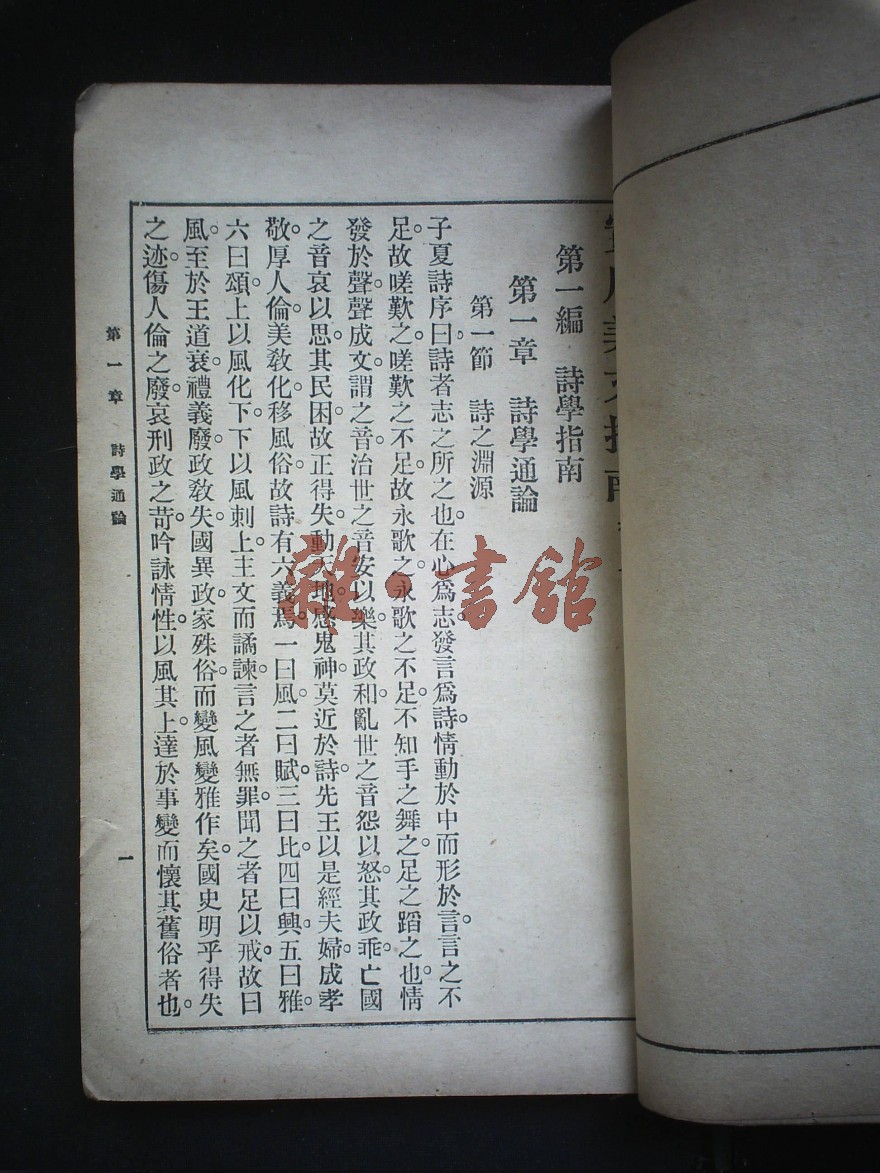 實用美文指南
第一編 詩學指南
第一章 詩學通論
第一節 詩之淵源
子夏詩序曰詩者志之所之也在心爲志發言爲詩情動於中而形於言言之不
足故嗟歎之嗟歎之不足故永歌之永歌之不足不知手之舞之足之蹈之也情
發於聲聲成文謂之音治世之音安以樂其政和亂世之音怨以怒其政乖亡國
之音哀以思其民困故正得失動天地感鬼神莫近於詩先王以是經夫婦成孝
敬厚人倫美敎化移風俗故詩有六義焉一曰風二曰賦三曰比四曰興五曰雅
六曰頌上以風化下下以風刺上主文而譎諫言之者無罪聞之者足以戒故曰
風至於王道衰禮義廢政敎失國異政家殊俗而變風變雅作矣國史明乎得失
之迹傷人倫之廢哀刑政之苛吟詠情性以風其上達於事變而懷其舊俗者也
第一章 詩學通論
一
雜·書館